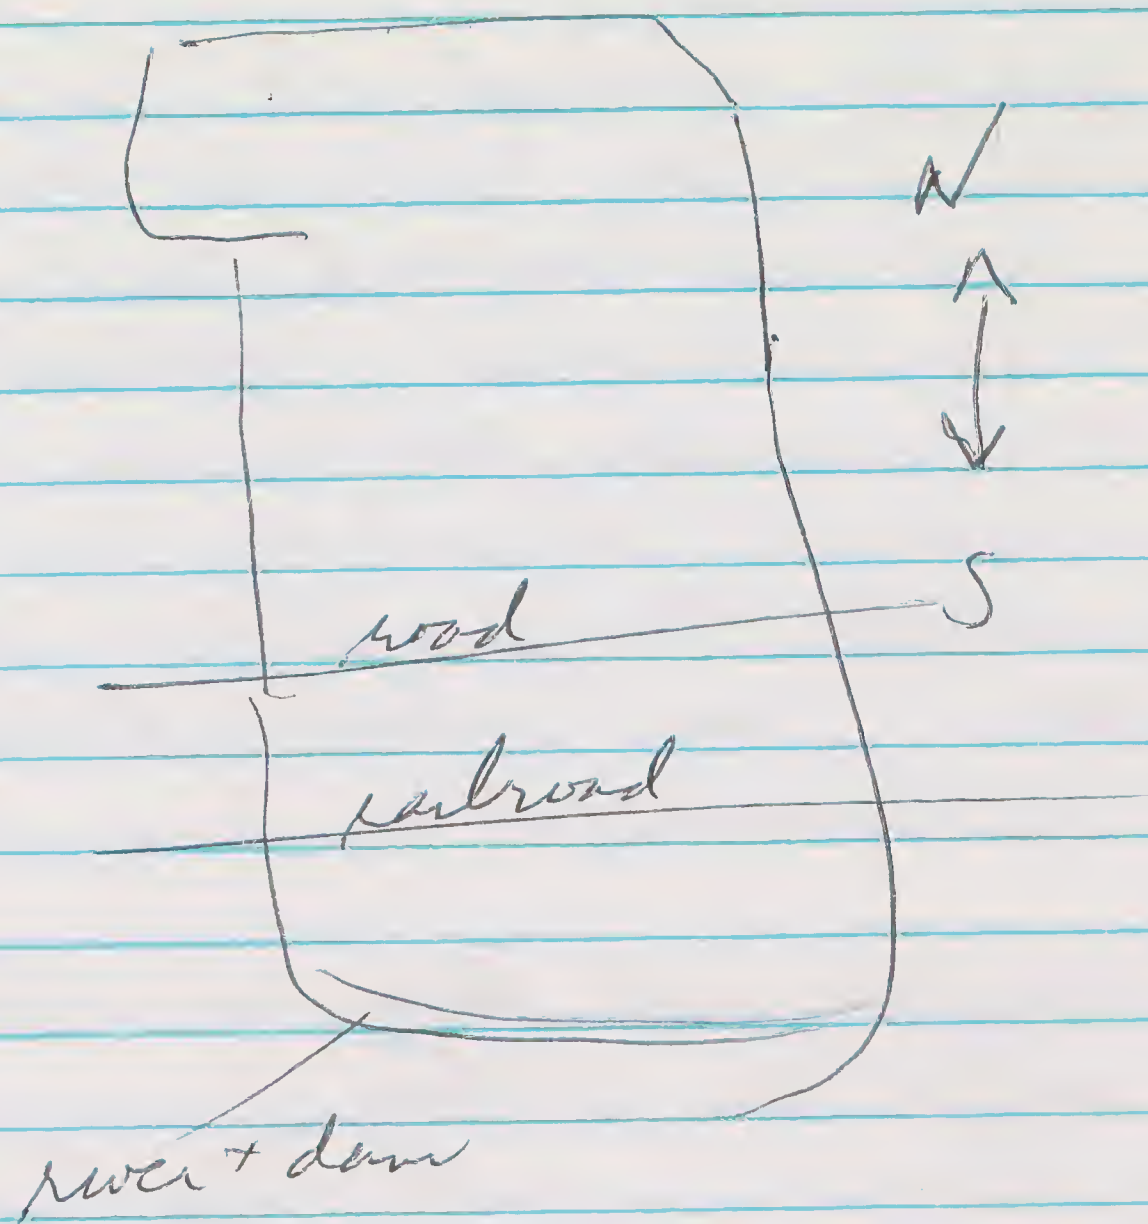 N
S
road
railroad
river + dam